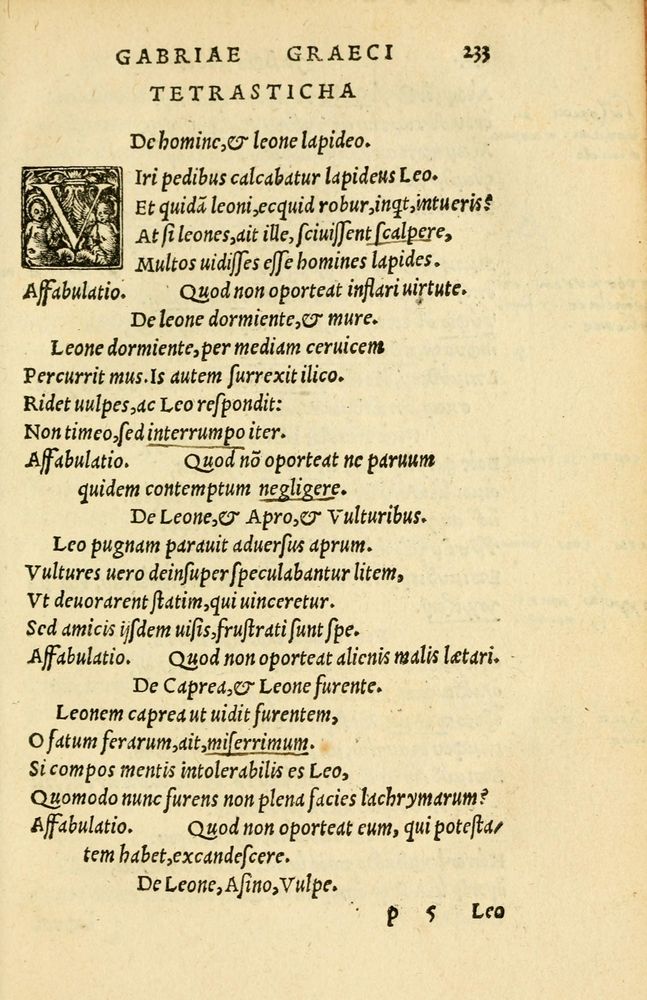 GABRIAE GRAECI 233
TETRASTICHA
De homine,& leone lapideo.
VIri pedibus calcabatur lapideus Leo.
Et quidã leoni,ecquid robur,inqt,intueris?
At si leones,ait ille, sciuissent scalpere,
Multos uidisses esse homines lapides.
Affabulatio. Quod non oporteat inflari uirtute.
De leone dormiente,& mure.
Leone dormiente,per mediam ceruicem
Percurrit mus.Is autem surrexit ilico.
Ridet uulpes,ac Leo respondit:
Non timeo,sed interrumpo iter.
Affabulatio. Quod nõ oporteat ne paruum
quidem contemptum negligere.
De Leone,& Apro,& Vulturibus.
Leo pugnam parauit aduersus aprum.
Vultures uero deinsuper speculabantur litem,
Vt deuorarent statim,qui uinceretur.
Sed amicis ijsdem uisis,frustrati sunt spe.
Affabulatio. Quod non oporteat alienis malis lætari.
De Caprea,& Leone furente.
Leonem caprea ut uidit furentem,
O fatum ferarum,ait,miserrimum.
Si compos mentis intolerabilis es Leo,
Quomodo nunc furens non plena facies lachrymarum?
Affabulatio. Quod non oporteat eum, qui potesta/
tem habet,excandescere.
De Leone, Asino, Vulpe.
p 5 Leo